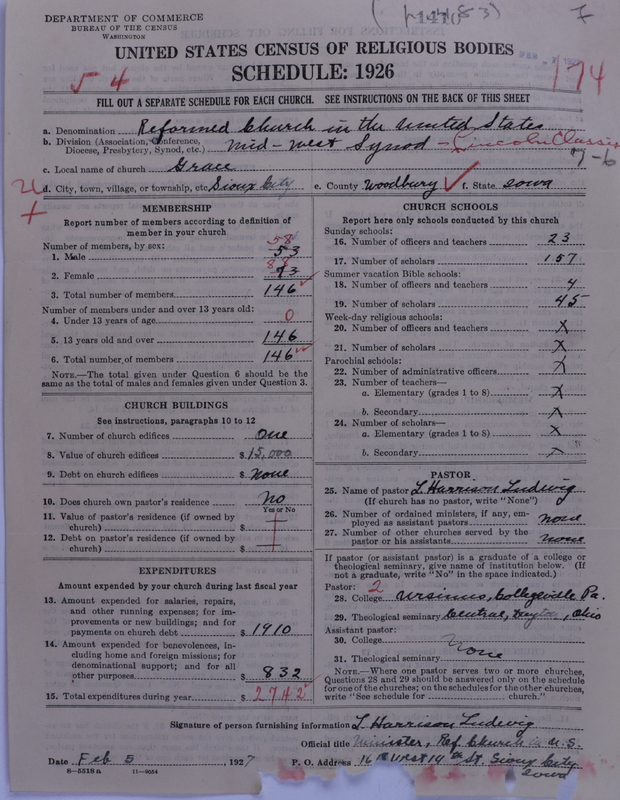 DEPARTMENT OF COMMERCE
BUREAU OF THE CENSUS
WASHINGTON
UNITED STATES CENSUS OF RELIGIOUS BODIES
SCHEDULE: 1926
5 4
174
FILL OUT A SEPARATE SCHEDULE FOR EACH CHURCH. SEE INSTRUCTIONS ON THE BACK OF THIS SHEET
a. Denomination Reformed Church in the United States
b. Division (Association, Conference, Diocese, Presbytery, Synod, etc.) Mid-west Synod - Lincoln Classis
7-6
c. Local name of church Grace
d. City, town, village, or township, etc. Sioux City e. County Woodbury f. State Iowa
MEMBERSHIP
Report number of members according to definition of
member in your church
Number of members, by sex:
58
1. Male 53
2. Female 93
3. Total number of members 146
Number of members under and over 13 years old:
4. Under 13 years of age 0
5. 13 years old and over 146
6. Total number of members 146
NOTE.—The total given under Question 6 should be
same as the total of males and females given under Question 3.
CHURCH BUILDINGS
See instructions, paragraphs 10 to 12
7. Number of church edifices One
8. Value of church edifices $ 15,000
9. Debt on church edifices $ None
10. Does church own pastor's residence No
Yes or No
11. Value of pastor's residence (if owned by
church) $
12. Debt on pastor's residence (if owned by
church) $
EXPENDITURES
Amount expended by your church during last fiscal year
13. Amount expended for salaries, repairs,
and other running expenses; for im-
provements or new buildings; and for
payments on church debt $ 1910
14. Amount expended for benevolences, in-
cluding home and foreign missions; for
denominational support; and for all
other purposes $ 832
15. Total expenditures during year $ 2742
CHURCH SCHOOLS
Report here only schools conducted by this church
Sunday schools:
16. Number of officers and teachers 23
17. Number of scholars 157
Summer vacation Bible schools:
18. Number of officers and teachers 4
19. Number of scholars 45
Week-day religious schools:
20. Number of officers and teachers X
21. Number of scholars X
Parochial schools:
22. Number of administrative officers X
23. Number of teachers—
a. Elementary (grades 1 to 8) X
b. Secondary X
24. Number of scholars—
a. Elementary (grades 1 to 8) X
b. Secondary X
PASTOR
25. Name of pastor L. Harrison Ludwig
(If church has no pastor, write "None")
26. Number of ordained ministers, if any, em-
ployed as assistant pastors none
27. Number of other churches served by the
pastor or his assistants none
If pastor (or assistant pastor) is a graduate of a college or
theological seminary, give name of institution below. (If
not a graduate, write "No" in the space indicated.)
Pastor: 2
28. College Ursinus, Collegeville Pa.
29. Theological seminary Central, Dayton, Ohio
Assistant pastor:
30. College
None
31. Theological seminary
NOTE.—Where one pastor serves two or more churches,
Questions 28 and 29 should be answered only on the schedule
for one of the churches; on the schedules for the other churches,
write "See schedule for church."
Signature of person furnishing information L. Harrison Ludwig
Official title Minister, Ref. Church in U.S.
Date Feb 5 1927 P. O. Address 14th St. Sioux City
Iowa
8—5518a 11—9654